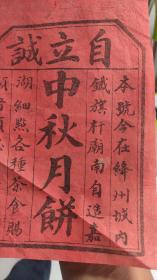 自立誠
本號今在絳州城內
鐵旗杆廟南自造嘉
中秋月餅
湖細點各種茶食賜
顧者須認